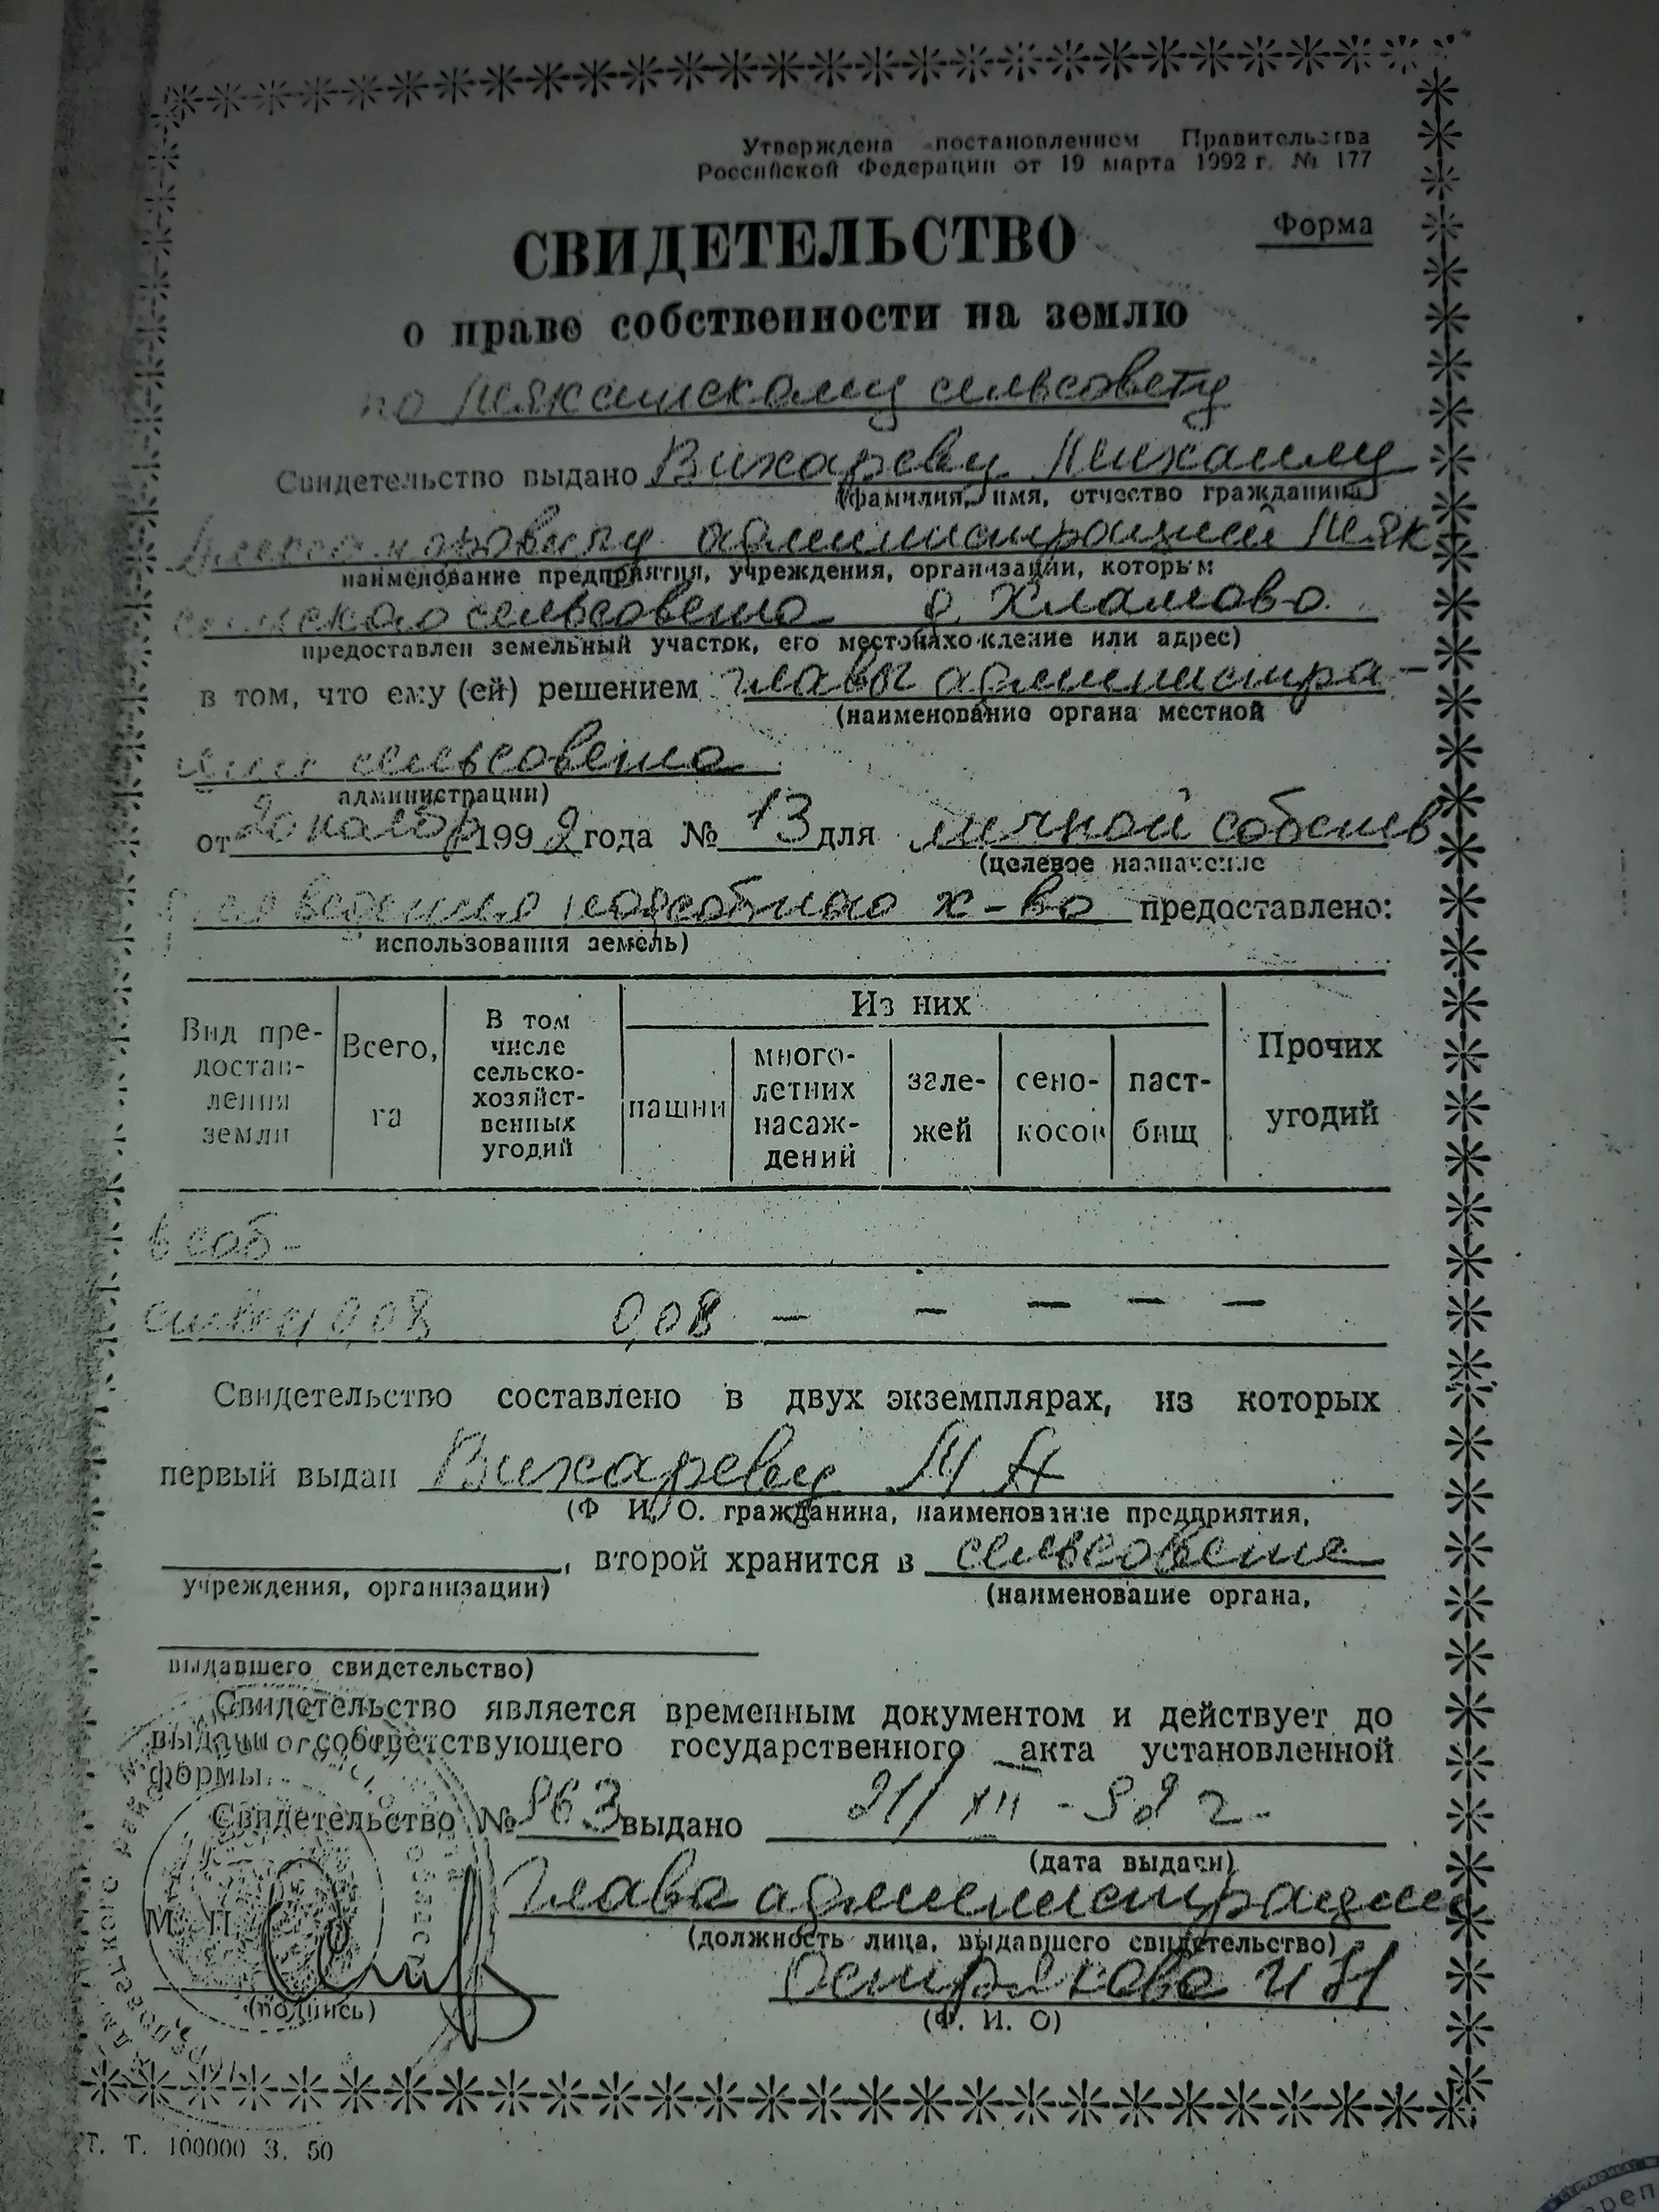 Утверждена постановлением Правительства
Российской Федерации от 19 марта 1992 г. № 177
Форма
СВИДЕТЕЛЬСТВО
о праве собственности на землю
по Шяксинскому сельсовету
Свидетельство выдано Вихареву Михаилу
(фамилия, имя, отчество гражданина,
Александровичу администрацией Шяк
наименование предприятия, учреждения, организации, которым
синского сельсовета д. Хламово
предоставлен земельный участок, его местонахождение или адрес)
в том, что ему (ей) решением главы администра-
(наименование органа местной
ции сельсовета
администрации)
от 20 ноября 1992 года № 13 для личной собств
(целевое назначение
для ведения подсобного х-во предоставлено:
использования земель)
Вид предоставления земли
Всего, га
В том числе сельскохозяйственных угодий
Из них
пашни
многолетних насаждений
залежей
сенокосов
пастбищ
Прочих угодий
в соб-
ственн 0,08 0,08 — — — — —
Свидетельство составлено в двух экземплярах, из которых
первый выдан Вихареву М А
(Ф. И. О. гражданина, наименование предприятия,
, второй хранится в сельсовете
учреждения, организации)
(наименование органа,
выдавшего свидетельство)
Свидетельство является временным документом и действует до
выдачи соответствующего государственного акта установленной
формы.
Свидетельство № 963 выдано 21/XII-92 г.
(дата выдачи)
Глава администрации
М. П.
(должность лица, выдавшего свидетельство)
(подпись)
(Ф. И. О)
Т. Т. 100000 З. 50